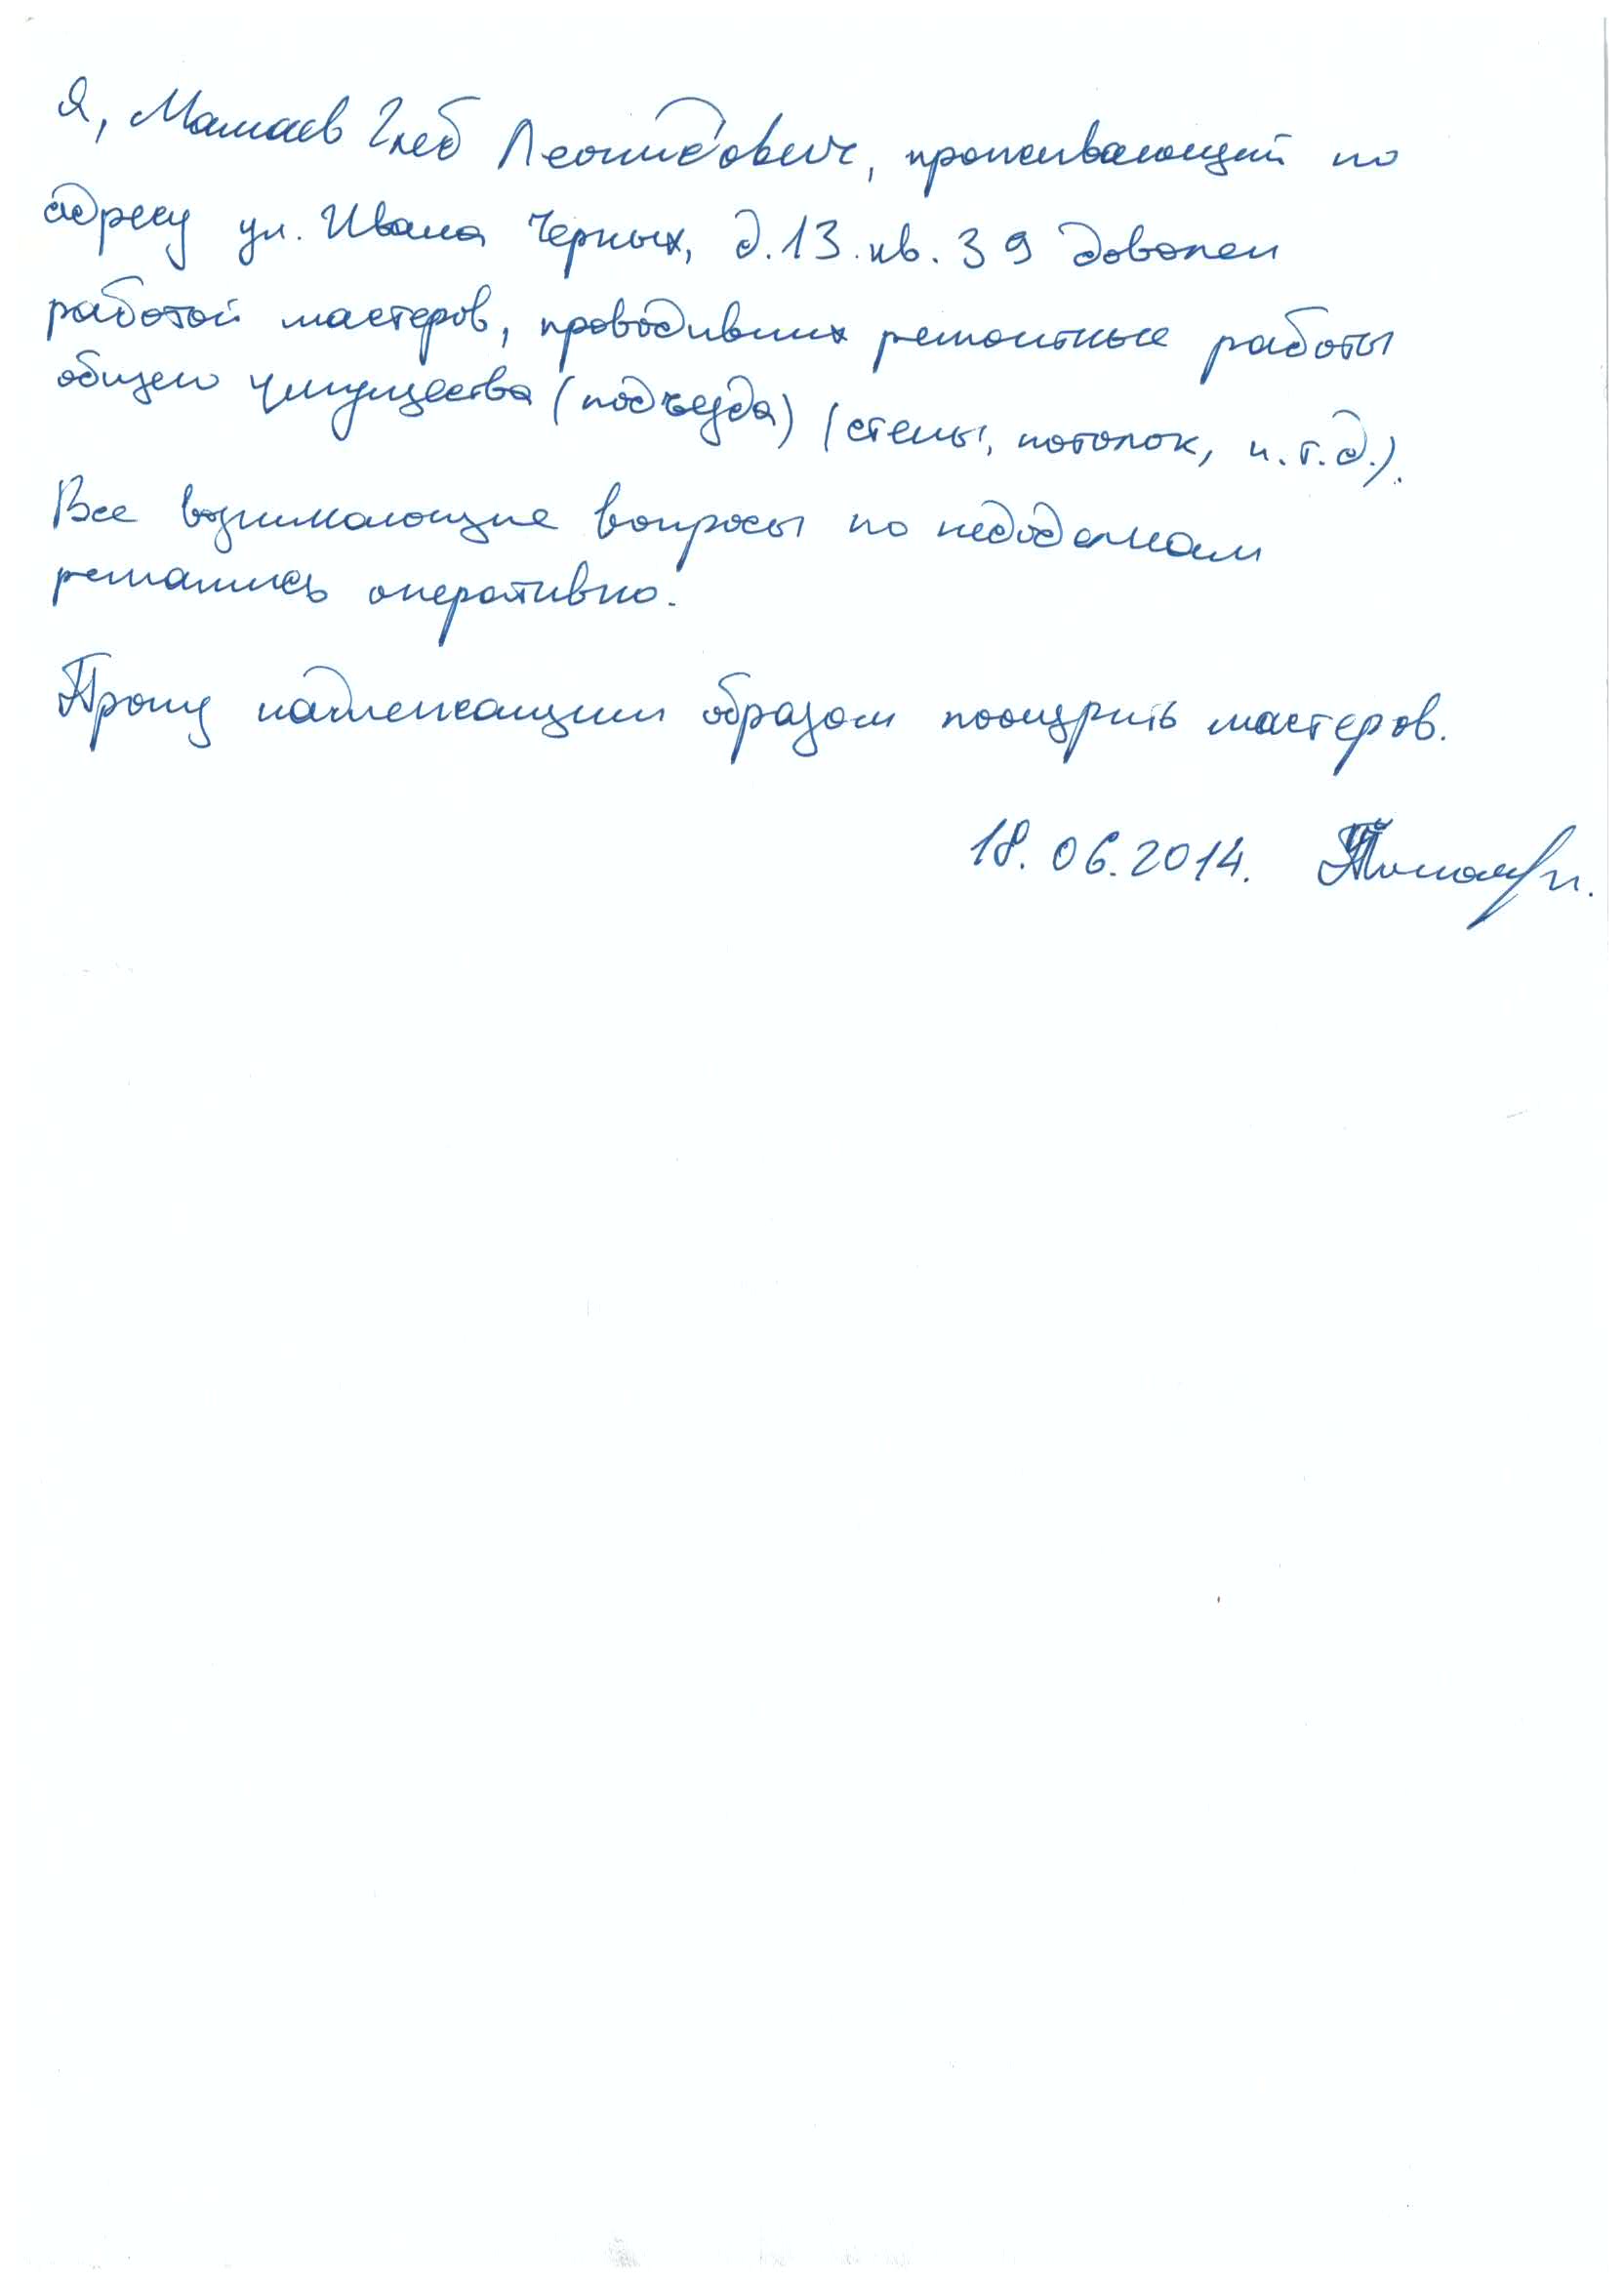 Я, Машаев Глеб Леонидович, проживающий по
адресу ул. Ивана Черных, д.13. кв. 39 доволен
работой мастеров, проводивших ремонтные работы
общего имущества (подъезда) (стены, потолок, и.т.д.).
Все возникающие вопросы по недоделкам
решались оперативно.
Прошу надлежащим образом поощрить мастеров.
18.06.2014.